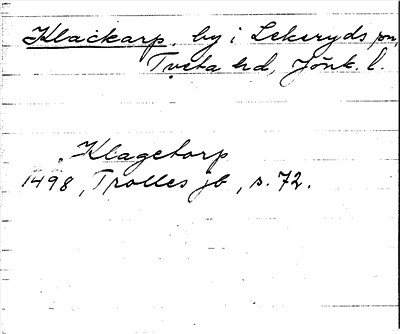 Klackarp, by i Lekeryds sn,
Tveta hd, Jönk. l.
Klagetorp
1498, Trolles jb, s. 72.